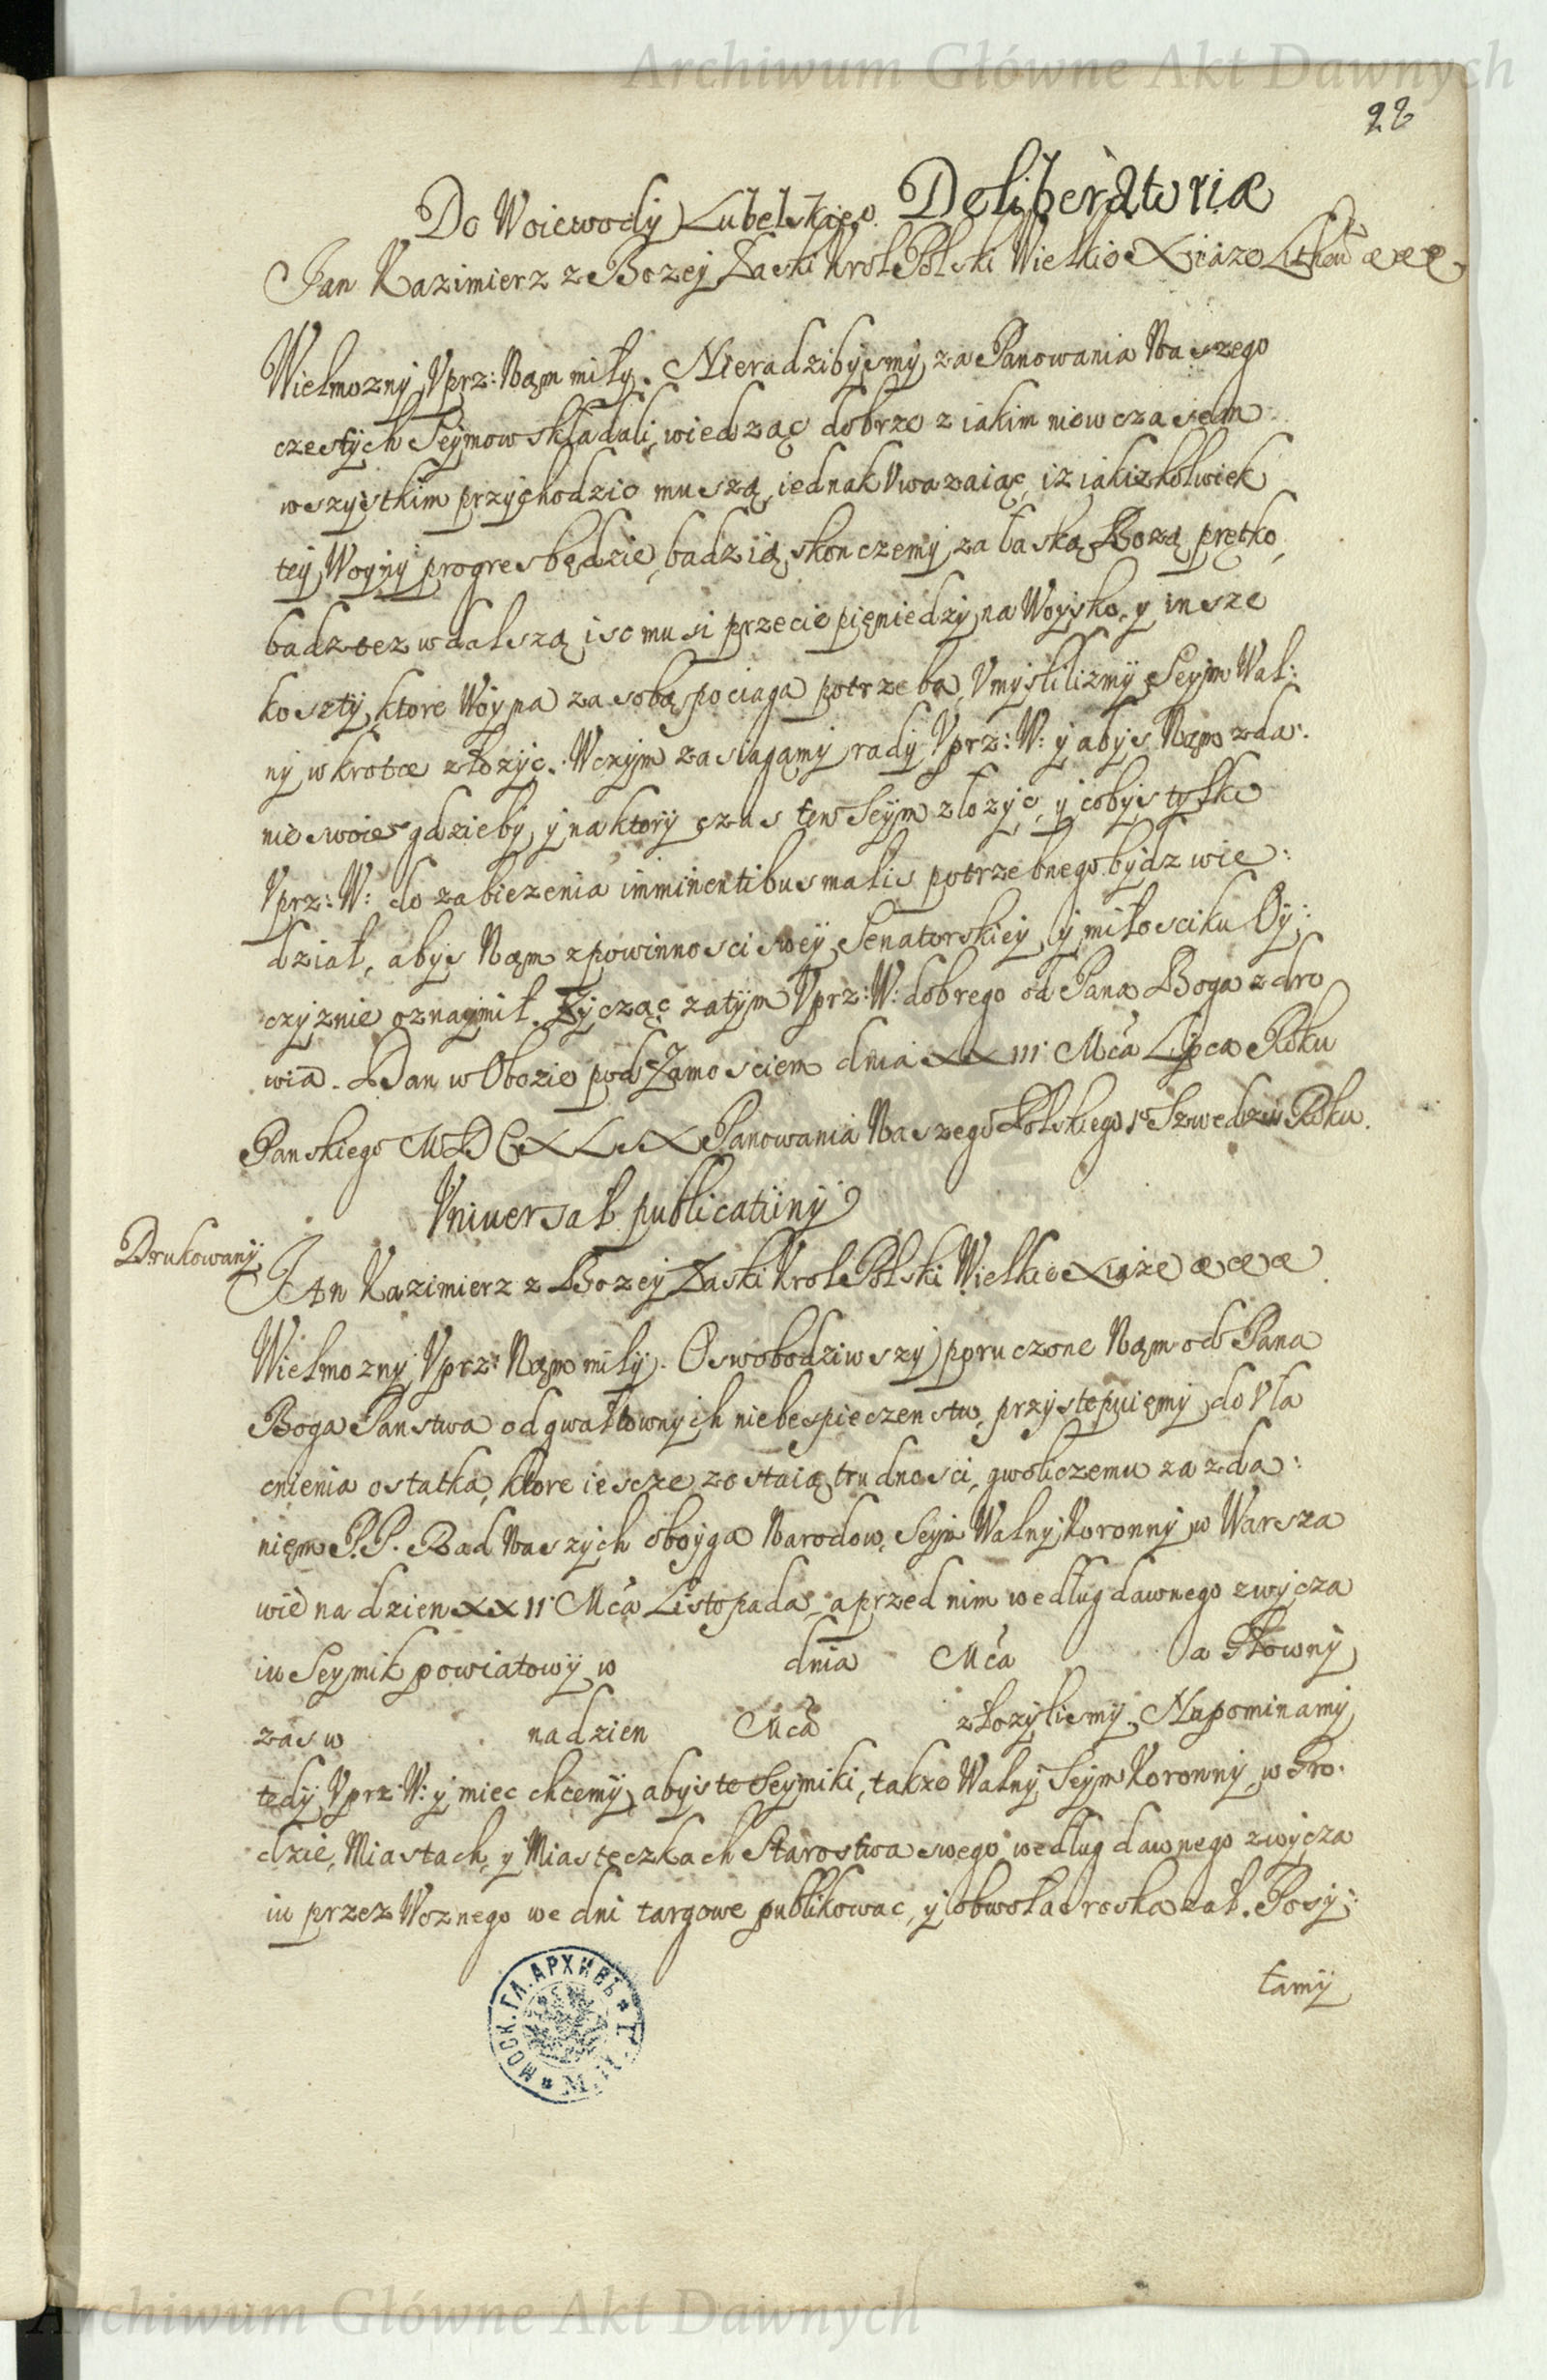 Archiwum Główne Akt Dawnych
22
Do Woiewody Lubelskiego. Deliberatoriæ
Jan Kazimierz z Bozey Łaski Krol Polski Wielkie Xiąze Litew: &&&
Wielmozny Vprz: Nam miły. Nieradzibysmy za Panowania Naszego
częstych Seymow składali, wiedząc dobrze z iakim niewczasem
wszystkim przychodzic muszą, iednak Vwazaiąc, iz iakizkolwiek
tey Woyny progres będzie, badz ią skonczemy za łaską Bozą prętko,
badz tez w dalszą isc musi przecie pięniedzy na Woysko, y insze
koszty, ktore Woyna za sobą pociąga potrzeba, Vmyslilizmy Seym Wal:
ny w krotce złozyc. Wczym zasiągamy rady Vprz: W: y abys Nam zda:
nie swoie gdzieby, y na ktory czas ten Seym złozyc, y cobys tylko
Vprz: W: do zabiezenia imminentibus malis potrzebnego bydz wie:
dział, abys Nam z powinnosci swey Senatorskiey, y miłosci ku Oy:
czyznie oznaymił. Zycząc zatym Vprz: W: dobrego od Pana Boga zdro
wia. Dan w Obozie pod Zamosciem dnia XXIII Mca Lipca Roku
Panskiego MDCXLIX Panowania Naszego Polskiego 1º Szwedzu Roku.
Vniuersał publicatiiny
Drukowany
JAn Kazimierz z Bozey Łaski Krol Polski Wielkie Xiąże &&&
Wielmozny Vprz: Nam miły. Oswobodziwszy poruczone Nam od Pana
Boga Panstwa od gwałtownych niebespieczenstw, przystepuięmy do Vła
cnienia ostatka, ktore iescze zostaią trudnosci, gwoli czemu za zda:
nięm P.P. Rad Naszych oboyga Narodow, Seym Walny Koronny w Warsza
wie na dzien XXII Mca Listopada, a przed nim według dawnego zwycza
iu Seymik powiatowy w dnia Mca a Głowny
zas w na dzien Mca złozylismy. Napominamy
tedy Vprz: W: y miec chcemy, abys te Seymiki, takze Walny Seym Koronny w Gro:
dzie, Miastach, y Miasteczkach Starostwa swego według dawnego zwycza
iu przez Woznego we dni targowe publikowac, y obwołac roskazał. Posy:
łamy
МОСК. ГЛ. АРХИВЪ
Archiwum Główne Akt Dawnych